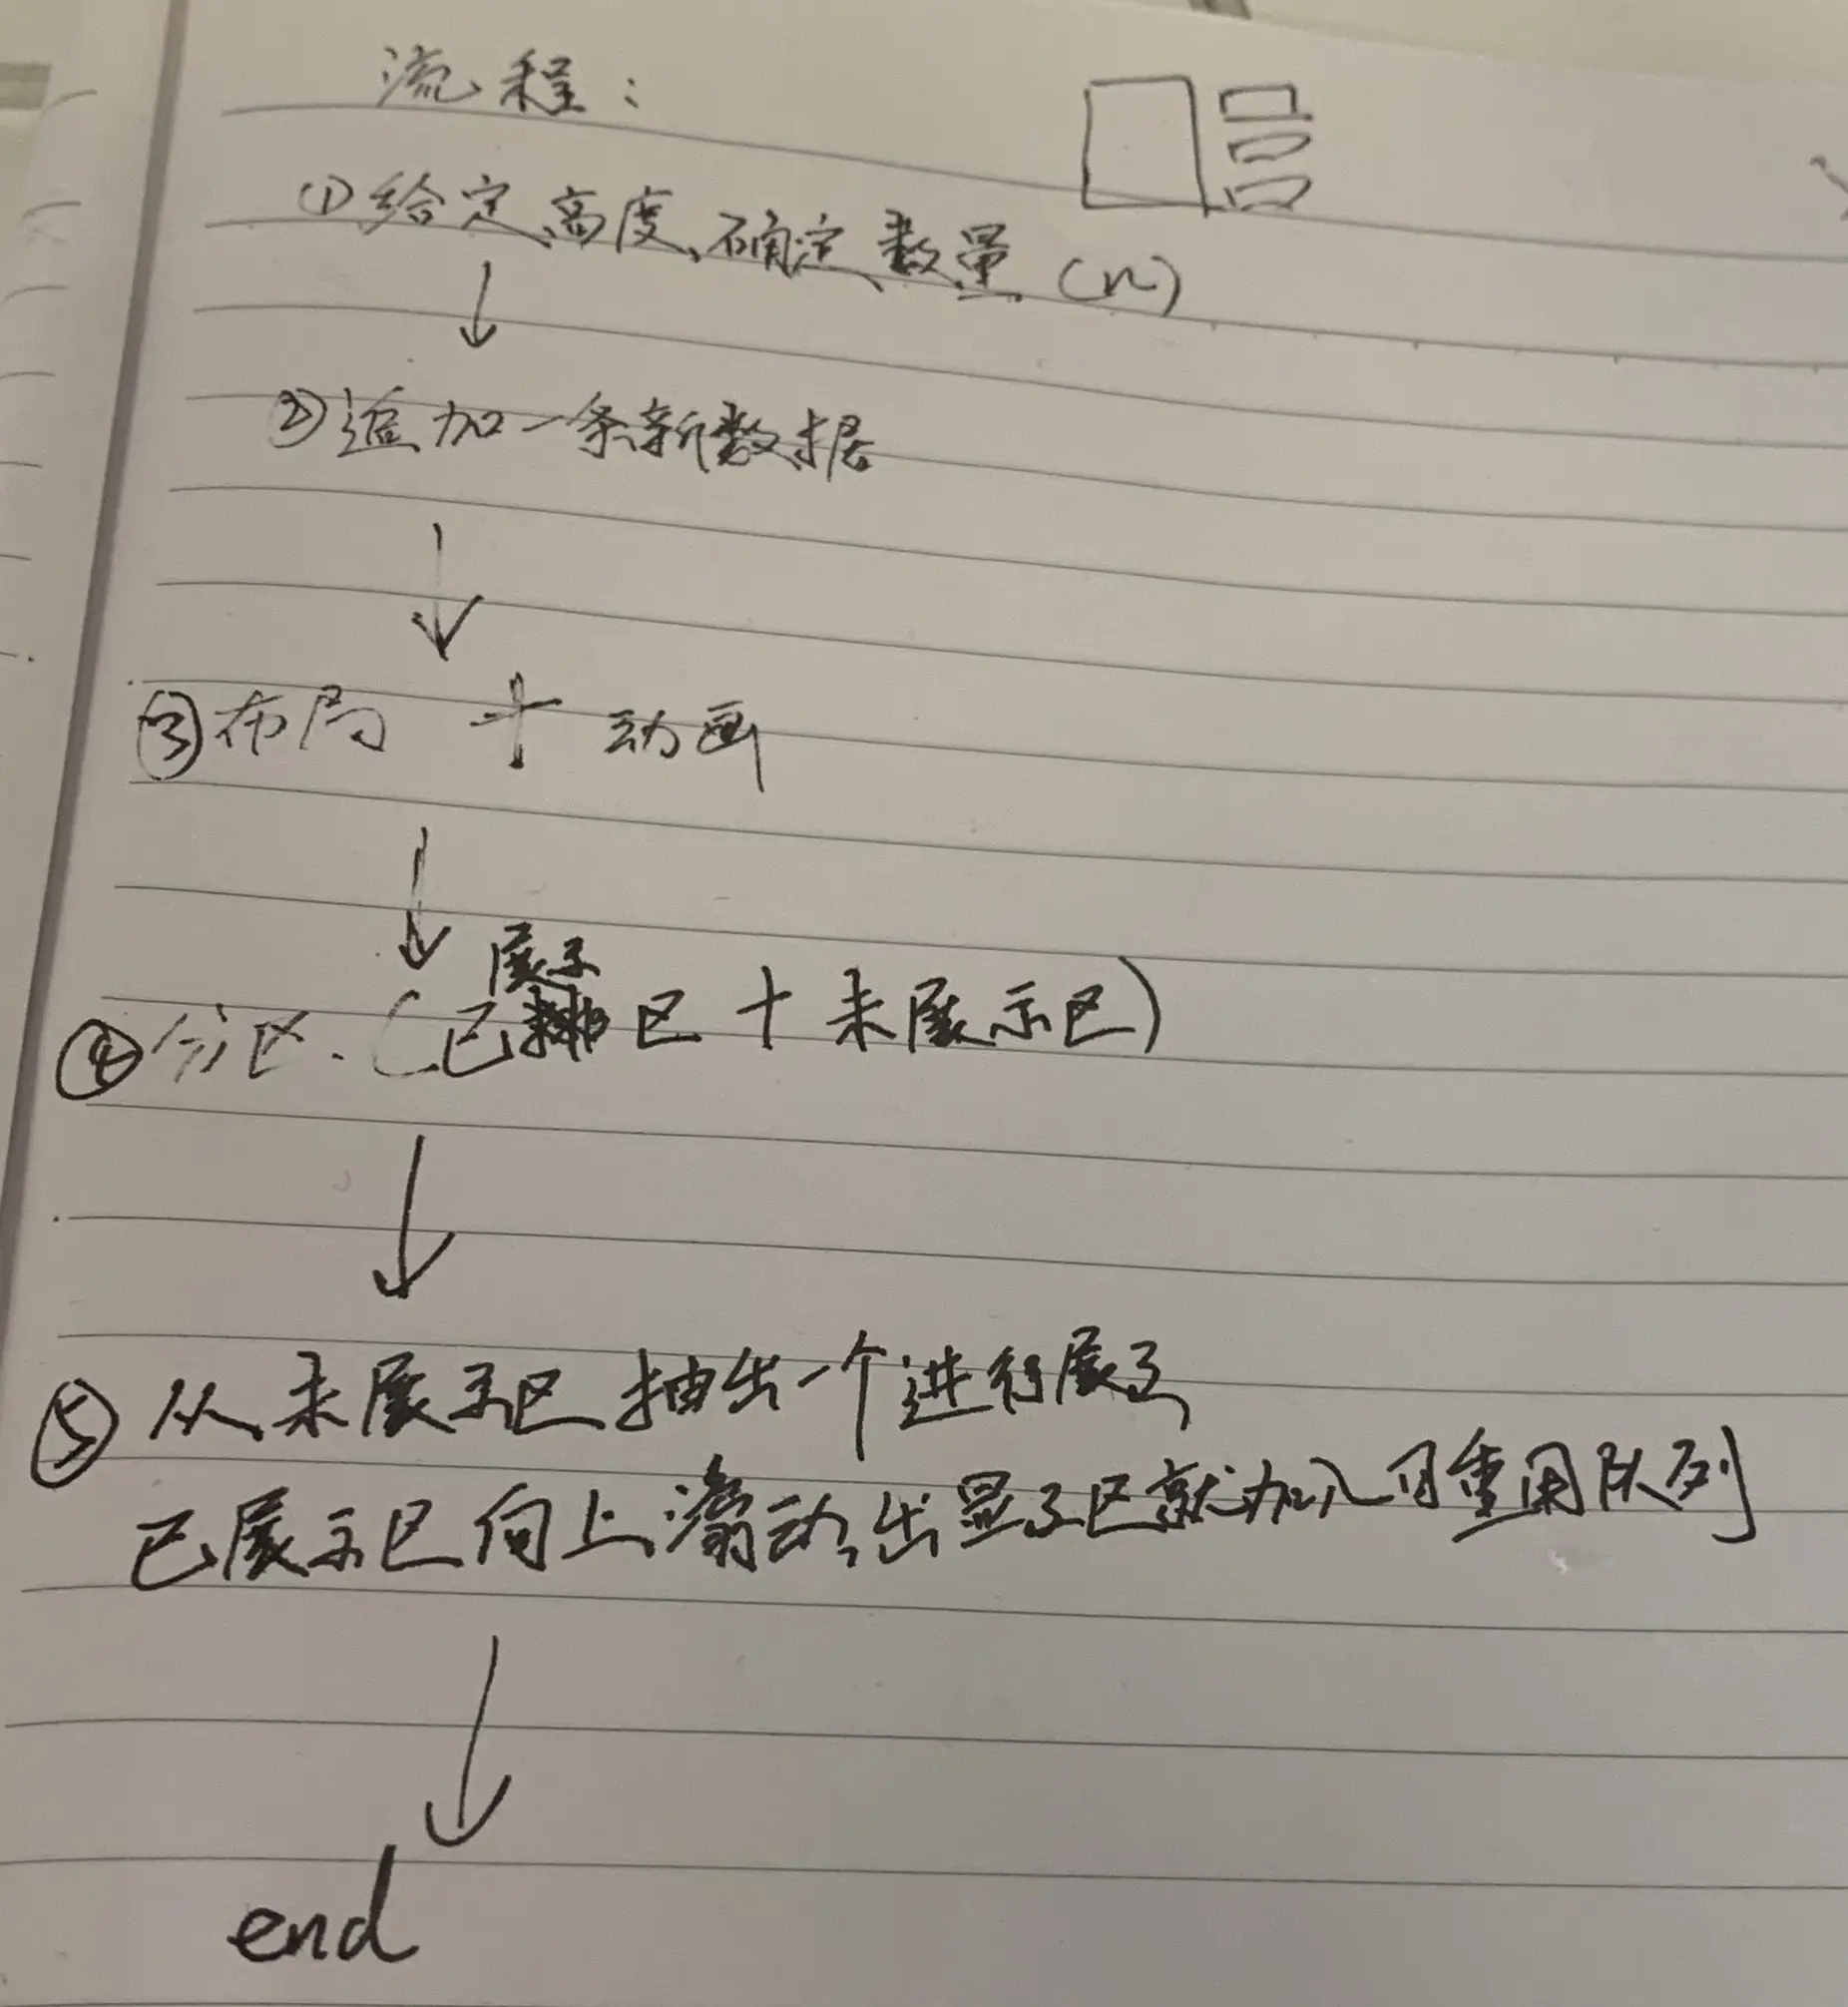 流程：
①给定高度，确定数量（n）
②追加一条新数据
③布局 + 动画
展示
④分区.（已区 + 未展示区）
⑤从未展示区抽出一个进行展示
已展示区向上滑动，出显示区就加入可重用队列
end